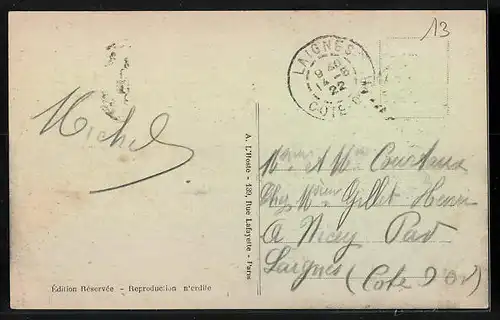 13
LAIGNES
COTE-D'OR
22
Michel
A. L'Hoste - 139, Rue Lafayette - Paris
Mr et Me
Chez Mr Gillet Henri
A Nicey Par
Laignes (Cote d'Or)
Édition Réservée - Reproduction interdite